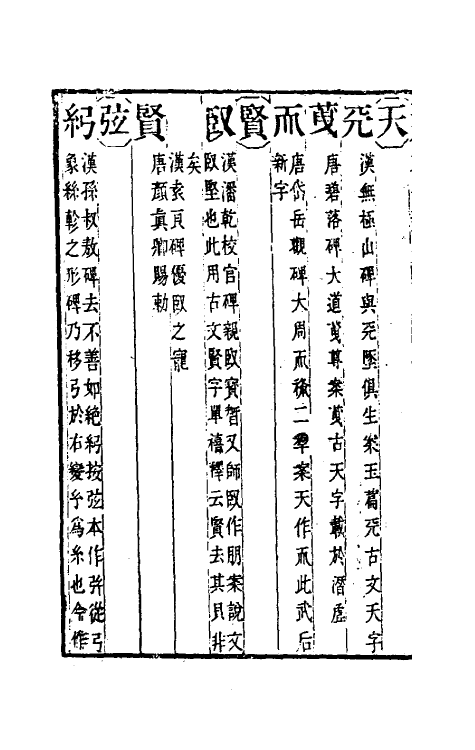 天
兲
漢無極山碑與兲墬俱生案玉篇兲古文天字
唐碧落碑大道尊案古天字載於潛虛
而
唐岱岳觀碑大周而稱二年案天作而此武后
新字
賢
臤
漢潘乾校官碑親臤寶智又師臤作朋案說文
臤堅也此用古文賢字單禧釋云賢去其貝非
矣
漢袁良碑優臤之寵
賢
唐顏真卿賜勅
弦
糿
漢孫叔敖碑去不善如絶糿按弦本作弦從弓
象絲軫之形碑乃移弓於右變乎為糸也今作